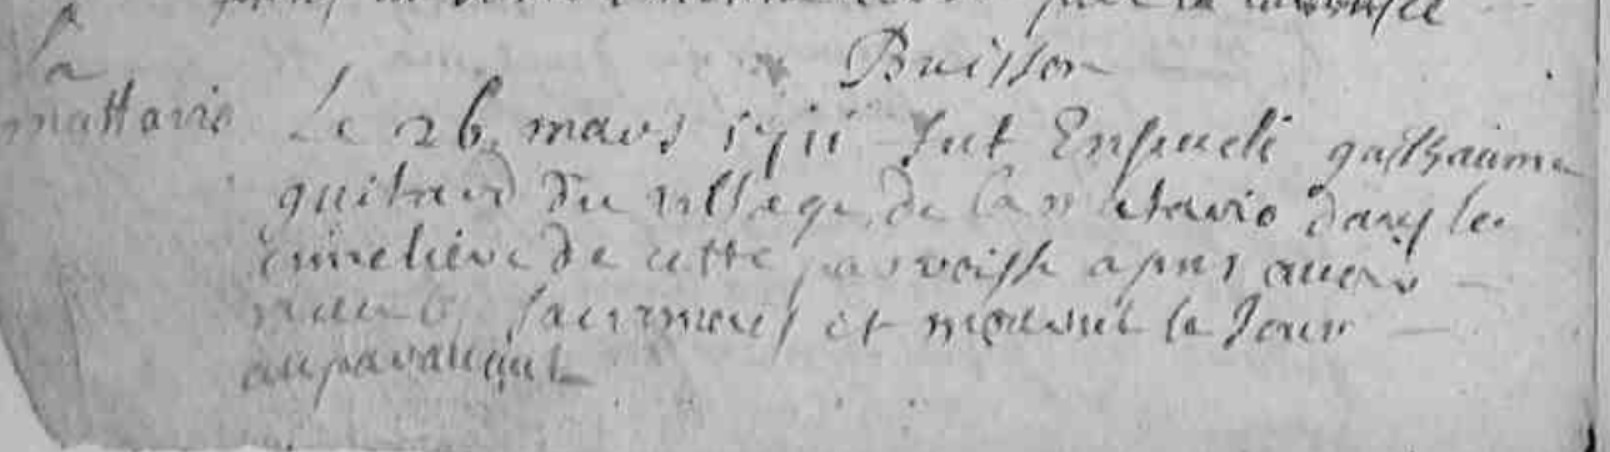 Buisson
La
mattarie Le 26 mars 1711 fut Ensueli guilhaume
guitard du village de la mattarie dans le
cimetiere de cette parroisse apres avoir
receu les sacremens et mourut le Jour
auparavant